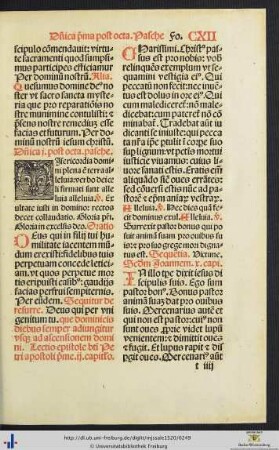 Dñica p̃ma post octa. Pasche Fo. CXII
scipulo cõmendauit: virtu-
te sacramenti quod sumpsi-
mus participes efficiamur
Per dominũ nostrũ. Alia.
Quesumus domine de⁹ no-
ster vt sacrosancta mysteria
que pro reparatiõis no-
stre munimine contulisti: et
p̃sens nostre remediũ esse
facias et futurum. Per do-
minũ nostrũ iesum christũ.
Dñica j. post octa. pasche.
Misericordia domi-
ni plena ē terra al-
leluia: verbo domi-
ni firmati sunt alle-
luia alleluia. ps. Ex
ultate iusti in domino: rectos
decet collaudatio. Gloria p̃ri.
Gloria in excelsis deo. Oratio
Deus qui in filij tui hu-
militate iacentem mũ-
dum erexisti: fidelibus tuis
perpetuam concede leticiã-
am. vt quos perpetue mor
tis eripuisti casib⁹: gaudijs
facias perfrui sempiternis.
Per eũdem. Sequitur de
resurre. Deus qui per vni
genitum tu. que dominicis
diebus semper adiungitur
vsq; ad ascensionem domi
ni. Lectio epistole bti Pe
tri apostoli p̃me. ij. capitło.
Charissimi. Christ⁹ pas-
sus est pro nobis: vob'
relinquēs exemplum vt se-
quamini vestigia ei⁹. Qui pec
catũ non fecit: nec inuē-
tus est dolus in ore ei⁹. Qui
cum malediceret᷑: nõ male-
dicebat: cum pateret᷑ nõ cõ
minabat᷑. Tradebat aũt iu
dicanti se iniuste. Qui pec-
cata nostra ipse ptulit in cor
pore suo
sup lignum: vt pctis mortui
iusticie viuamus: cuius li-
uore sanati estis. Eratis eñi
aliquando sicut oues errãtes: sed
cõuersi estis nũc ad pasto-
rē τ ep̃m aĩaꝝ vestraꝝ.
Alleluia. ℣. Pec dies quã fe-
cit dominus exul. Alleluia. ℣.
Surrexit pastor bonus qui po
suit animã suam pro ouibus su
is: et pro suo grege mori digna-
tus est. Sequētia. Oratiõe.
Scđm Joannem. x. capi.
In illo tpe dixit iesus di-
scipulis suis. Ego sum
pastor bon⁹. Bonus pastor
animã suã dat pro ouibus
suis. Mercenarius aut̃ et
qui non est pastor: cui⁹ non
sunt oues p̃prie videt lupũ
venientem: τ dimittit oues
τ fugit. Et lupus rapit τ dis-
ꝑgit oues. Mercenari⁹ aũt
t iiij
http://dl.ub.uni-freiburg.de/diglit/missale1520/0249
© Universitätsbibliothek Freiburg